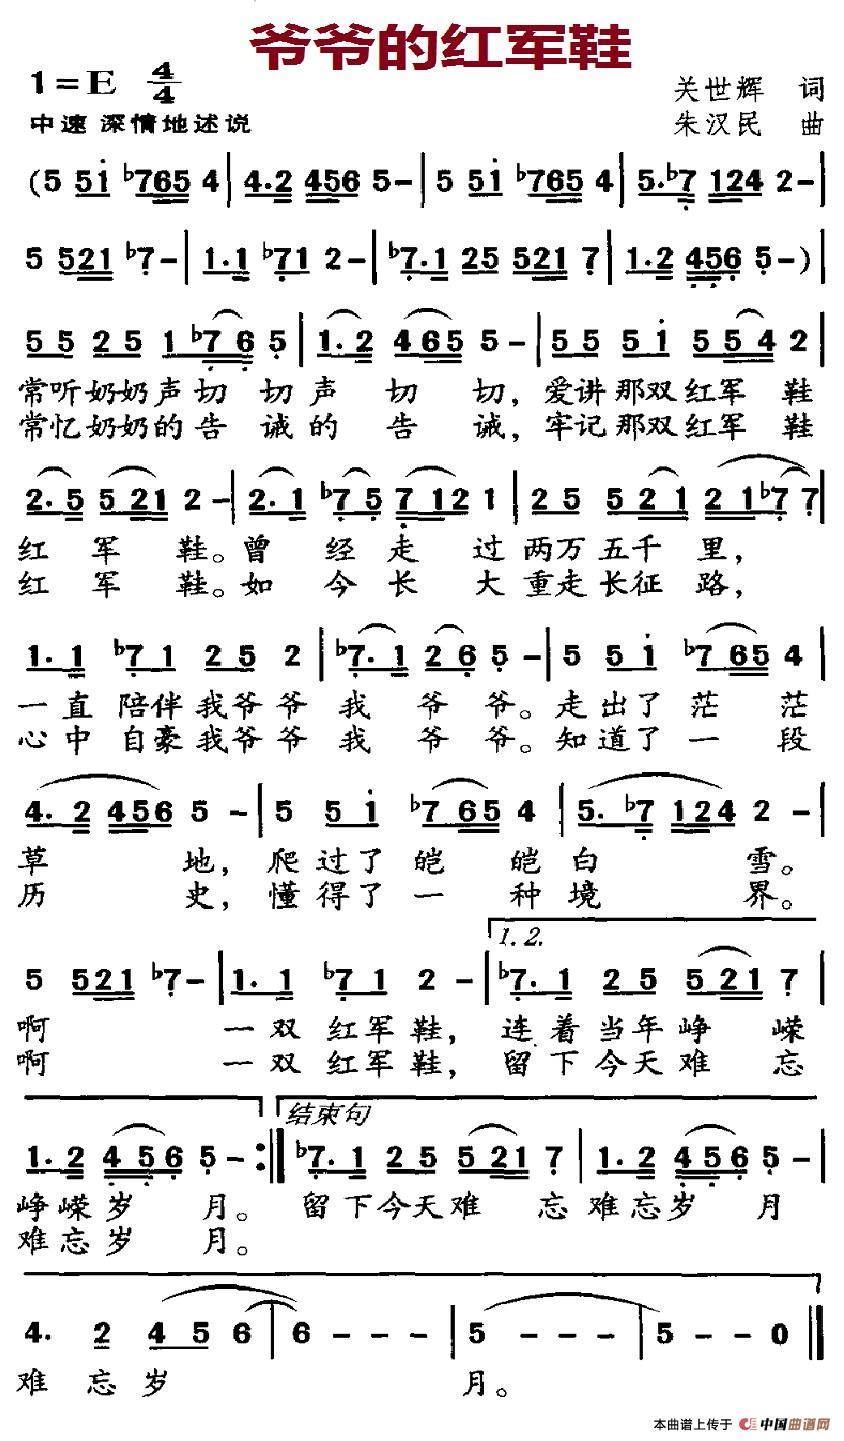 爷爷的红军鞋
1=E 4/4
关世辉 词
中速 深情地述说
朱汉民 曲
(5 51 ♭765 4 | 4.2 456 5- | 5 51 ♭765 4 | 5.♭7 124 2- |
5 521 ♭7- | 1.1 ♭71 2- | ♭7.1 25 521 7 | 1.2 456 5-) |
55 25 1 ♭76 5 | 1.2 465 5- | 55 51 554 2 |
常听奶奶声切 切声 切 切，爱讲那双红军 鞋
常忆奶奶的告 诫的 告 诫，牢记那双红军 鞋
2.5 521 2- | 2.1 ♭75 7121 21 | 25 521 21♭7 7 |
红 军 鞋。曾 经走 过两万五千 里，
红 军 鞋。如 今长 大重走长征 路，
1.1 ♭71 25 2 | ♭7.1 26 5- | 5 51 ♭765 4 |
一直陪伴我爷爷 我 爷 爷。走出了茫 茫
心中自豪我爷爷 我 爷 爷。知道了一 段
4.2 456 5- | 5 51 ♭765 4 | 5.♭7 124 2- |
草 地，爬过了皑 皑白 雪。
历 史，懂得了一 种境 界。
1.2.
5 521 ♭7- | 1.1 ♭71 2- | ♭7.1 25 521 7 |
啊 一双红军鞋，连着当年峥 嵘
啊 一双红军鞋，留下今天难 忘
结束句
1.2 456 5- :‖ ♭7.1 25 521 7 | 1.2 456 5- |
峥嵘岁 月。留下今天难 忘难忘岁 月
难忘岁 月。
4. 2 45 6 | 6 - - - | 5 - - - | 5 - - 0 ‖
难 忘岁 月。
本曲谱上传于 中国曲谱网